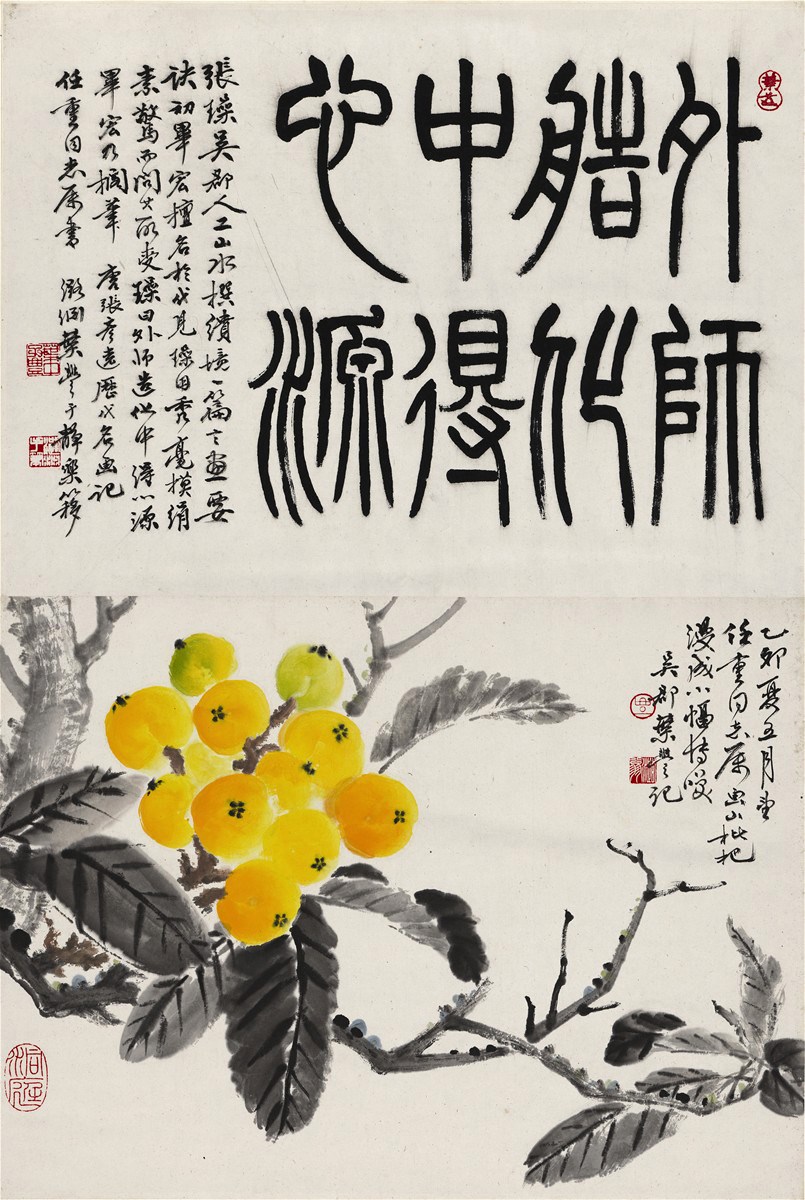 外師
艁化
中得
心源
張璪吳郡人工山水撰繪境一篇言畫要
訣初畢宏擅名於代見璪用禿毫摸絹
素驚而問其所受璪曰外師造化中得心源
畢宏乃擱筆 唐張彥遠歷代名畫記
任重同志屬書 葉豐于靜樂簃
乙卯夏五月
任重同志屬畫山枇杷
漫成小幅博哂
吳郡葉之記